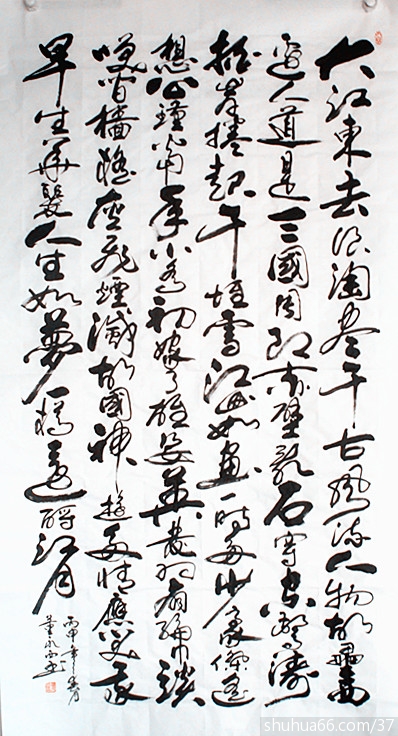 大江東去浪淘盡千古風流人物故壘西
邊人道是三國周郎赤壁亂石穿空驚濤
拍岸捲起千堆雪江山如畫一時多少豪傑遙
想公瑾當年小喬初嫁了雄姿英發羽扇綸巾談
咲間檣櫓灰飛煙滅故國神遊多情應笑我
早生華髮人生如夢一樽還酹江月
丙申年
董
shuhua66.com/37